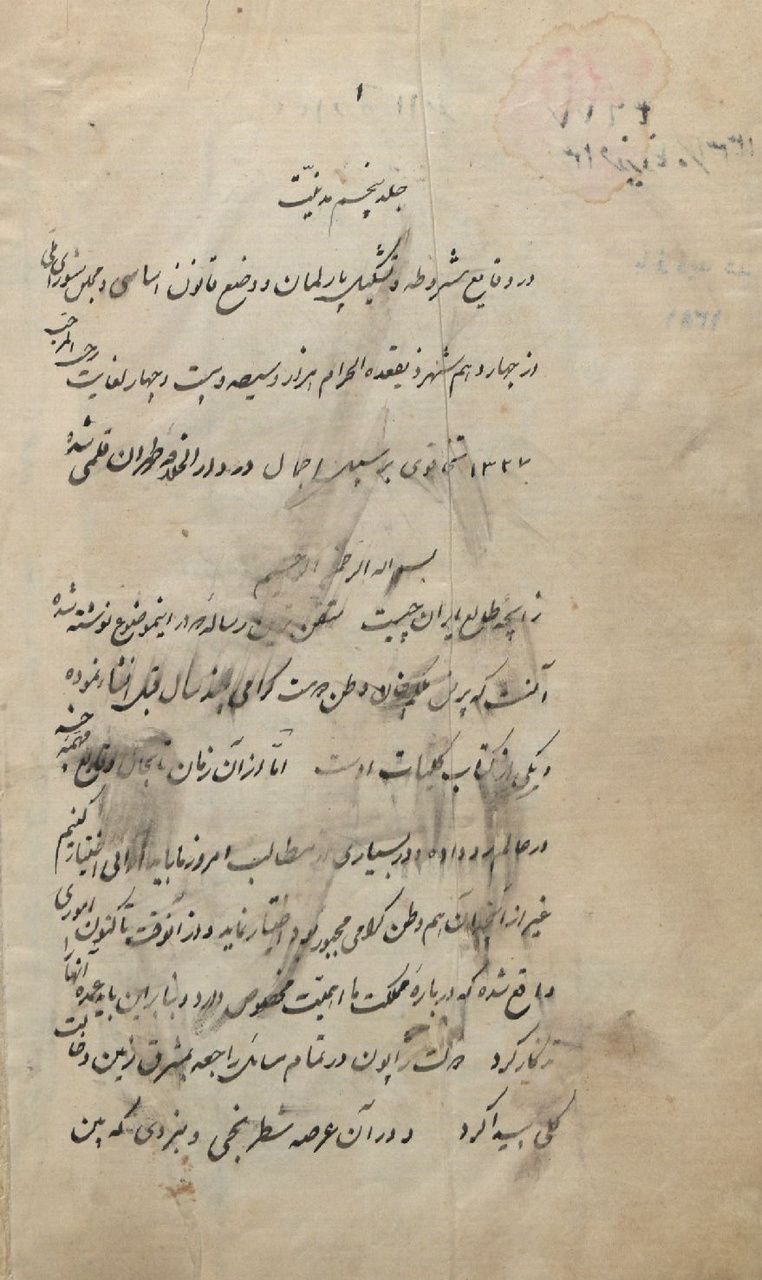 ۱
جلد پنجم مدنیّت
در وقایع مشروطه و تشکیل پارلمان و وضع قانون اساسی و مجلس شورای ملی
از چهاردهم شهر ذیقعده الحرام هزار و سیصد و بیست و چهار لغایت رجب المرجب
۱۳۲۷ تنخاقوی بر سبیل اجمال در دار الخلافه طهران قلمی شده
بسم اله الرحمن الرحیم
زایچه طالع ایران چیست متقن ترین رساله که در اینموضوع نوشته شده
آنست که پرنس ملکم خان وطن پرست گرامی چند سال قبل انشاء نموده
و یکی از کتاب کلیات اوست امّا از آن زمان تا بحال وقایع مهمّه
در عالم رو داده و در بسیاری از مطالب امروز ما باید اختیار کنیم
غیر از آنچه آن هم وطن گرامی مجبور بود اختیار نماید و از آنوقت تا کنون اموری
واقع شده که درباره مملکت ما اهمیّت مخصوص دارد و بنابراین باید عمده آنها را
تذکار کرد دولت ژاپون در تمام مسائل راجعه بمشرق زمین
کلی پیدا کرد و در آن عرصه شطرنجی و نبردی که بین